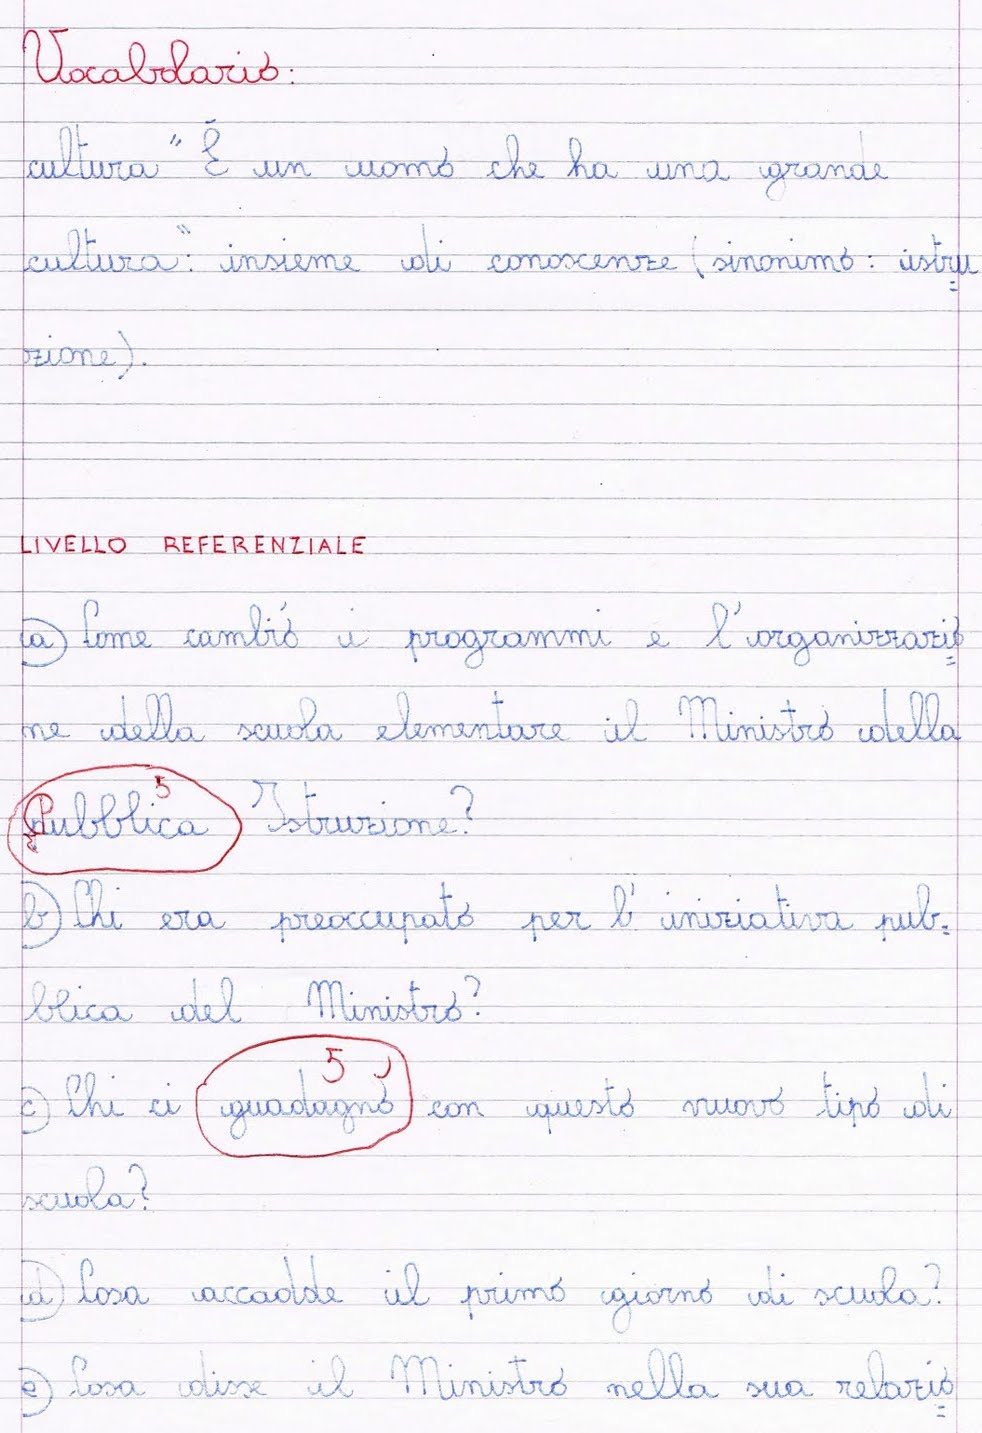 Vocabolario:
cultura " È un uomo che ha una grande
cultura": insieme di conoscenze (sinonimo: istru=
zione).
LIVELLO REFERENZIALE
a) Come cambiò i programmi e l'organizzazio=
ne della scuola elementare il Ministro della
5
Pubblica Istruzione?
b) Chi era preoccupato per l'iniziativa pub=
blica del Ministro?
5
c) Chi ci guadagnò con questo nuovo tipo di
scuola?
d) Cosa accadde il primo giorno di scuola?
e) Cosa disse il Ministro nella sua relazio=